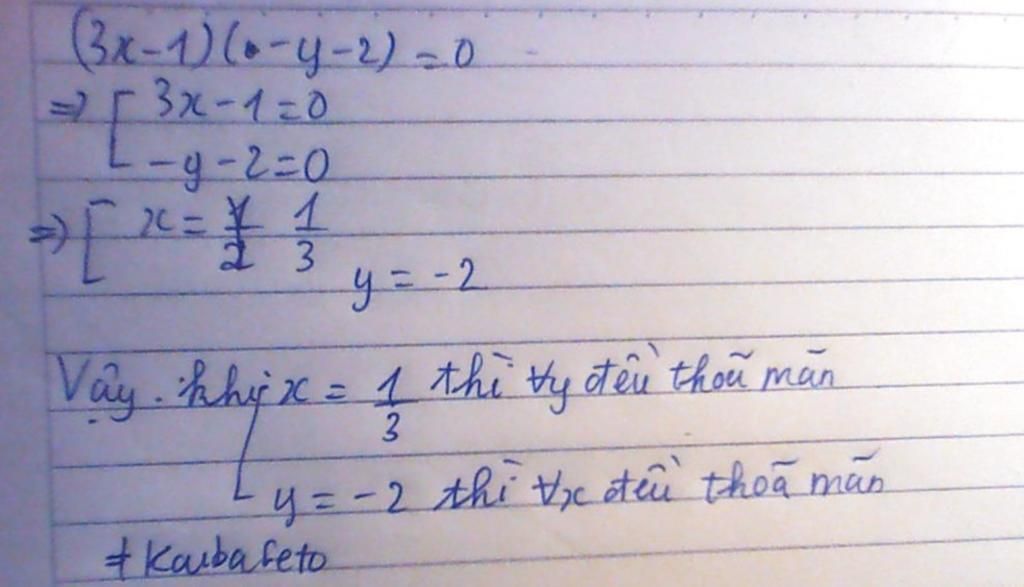 (3x-1)(-y-2)=0
=> [ 3x-1=0
-y-2=0
=> [ x = 1/3
y = -2
Vậy khi x = 1/3 thì ∀y đều thoã mãn
y = -2 thì ∀x đều thoã mãn